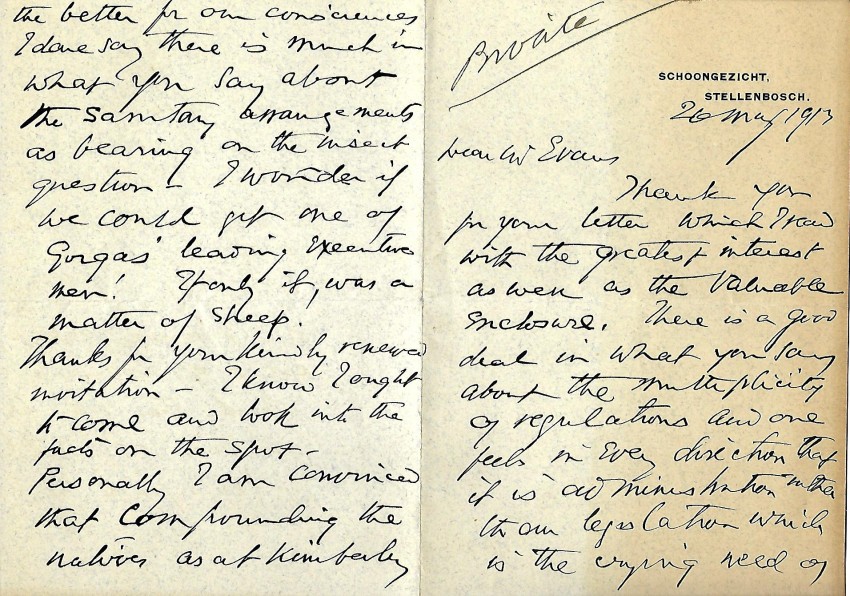 Private
SCHOONGEZICHT,
STELLENBOSCH.
26 May 1913
Dear Mr Evans
Thank you
for your letter which I read
with the greatest interest
as well as the valuable
enclosure. There is a good
deal in what you say
about the multiplicity
of regulations and one
feels in every direction that
it is administration rather
than legislation which
is the crying need of
the better for our consciences
I dare say there is much in
what you say about
the sanitary arrangements
as bearing on the insect
question – I wonder if
we could get one of
Gorgas' leading Executive
men! If only it, was a
matter of sheep.
Thanks for your kindly renewed
invitation – I know I ought
to come and look into the
facts on the spot –
Personally I am convinced
that compounding the
natives as at Kimberley